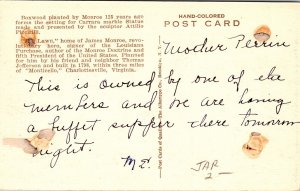 Boxwood planted by Monroe 125 years ago forms the setting for Carrara marble Statue made and presented by the sculptor Attilio
LAWN," home of James Monroe, revolutionary hero, signer of the Louisiana Purchase, author of the Monroe Doctrine and fifth President of the United States. Planned for him by his friend and neighbor Thomas Jefferson and built in 1798, within three miles of "Monticello," Charlottesville, Virginia.
HAND-COLORED
POST CARD
Post Cards of Quality. The Albertype Co., Brooklyn, N. Y.
Mother Perrin
This is owned by one of the
members and we are having
a buffet supper there tomorrow
night.
M.E.
JAR
2-